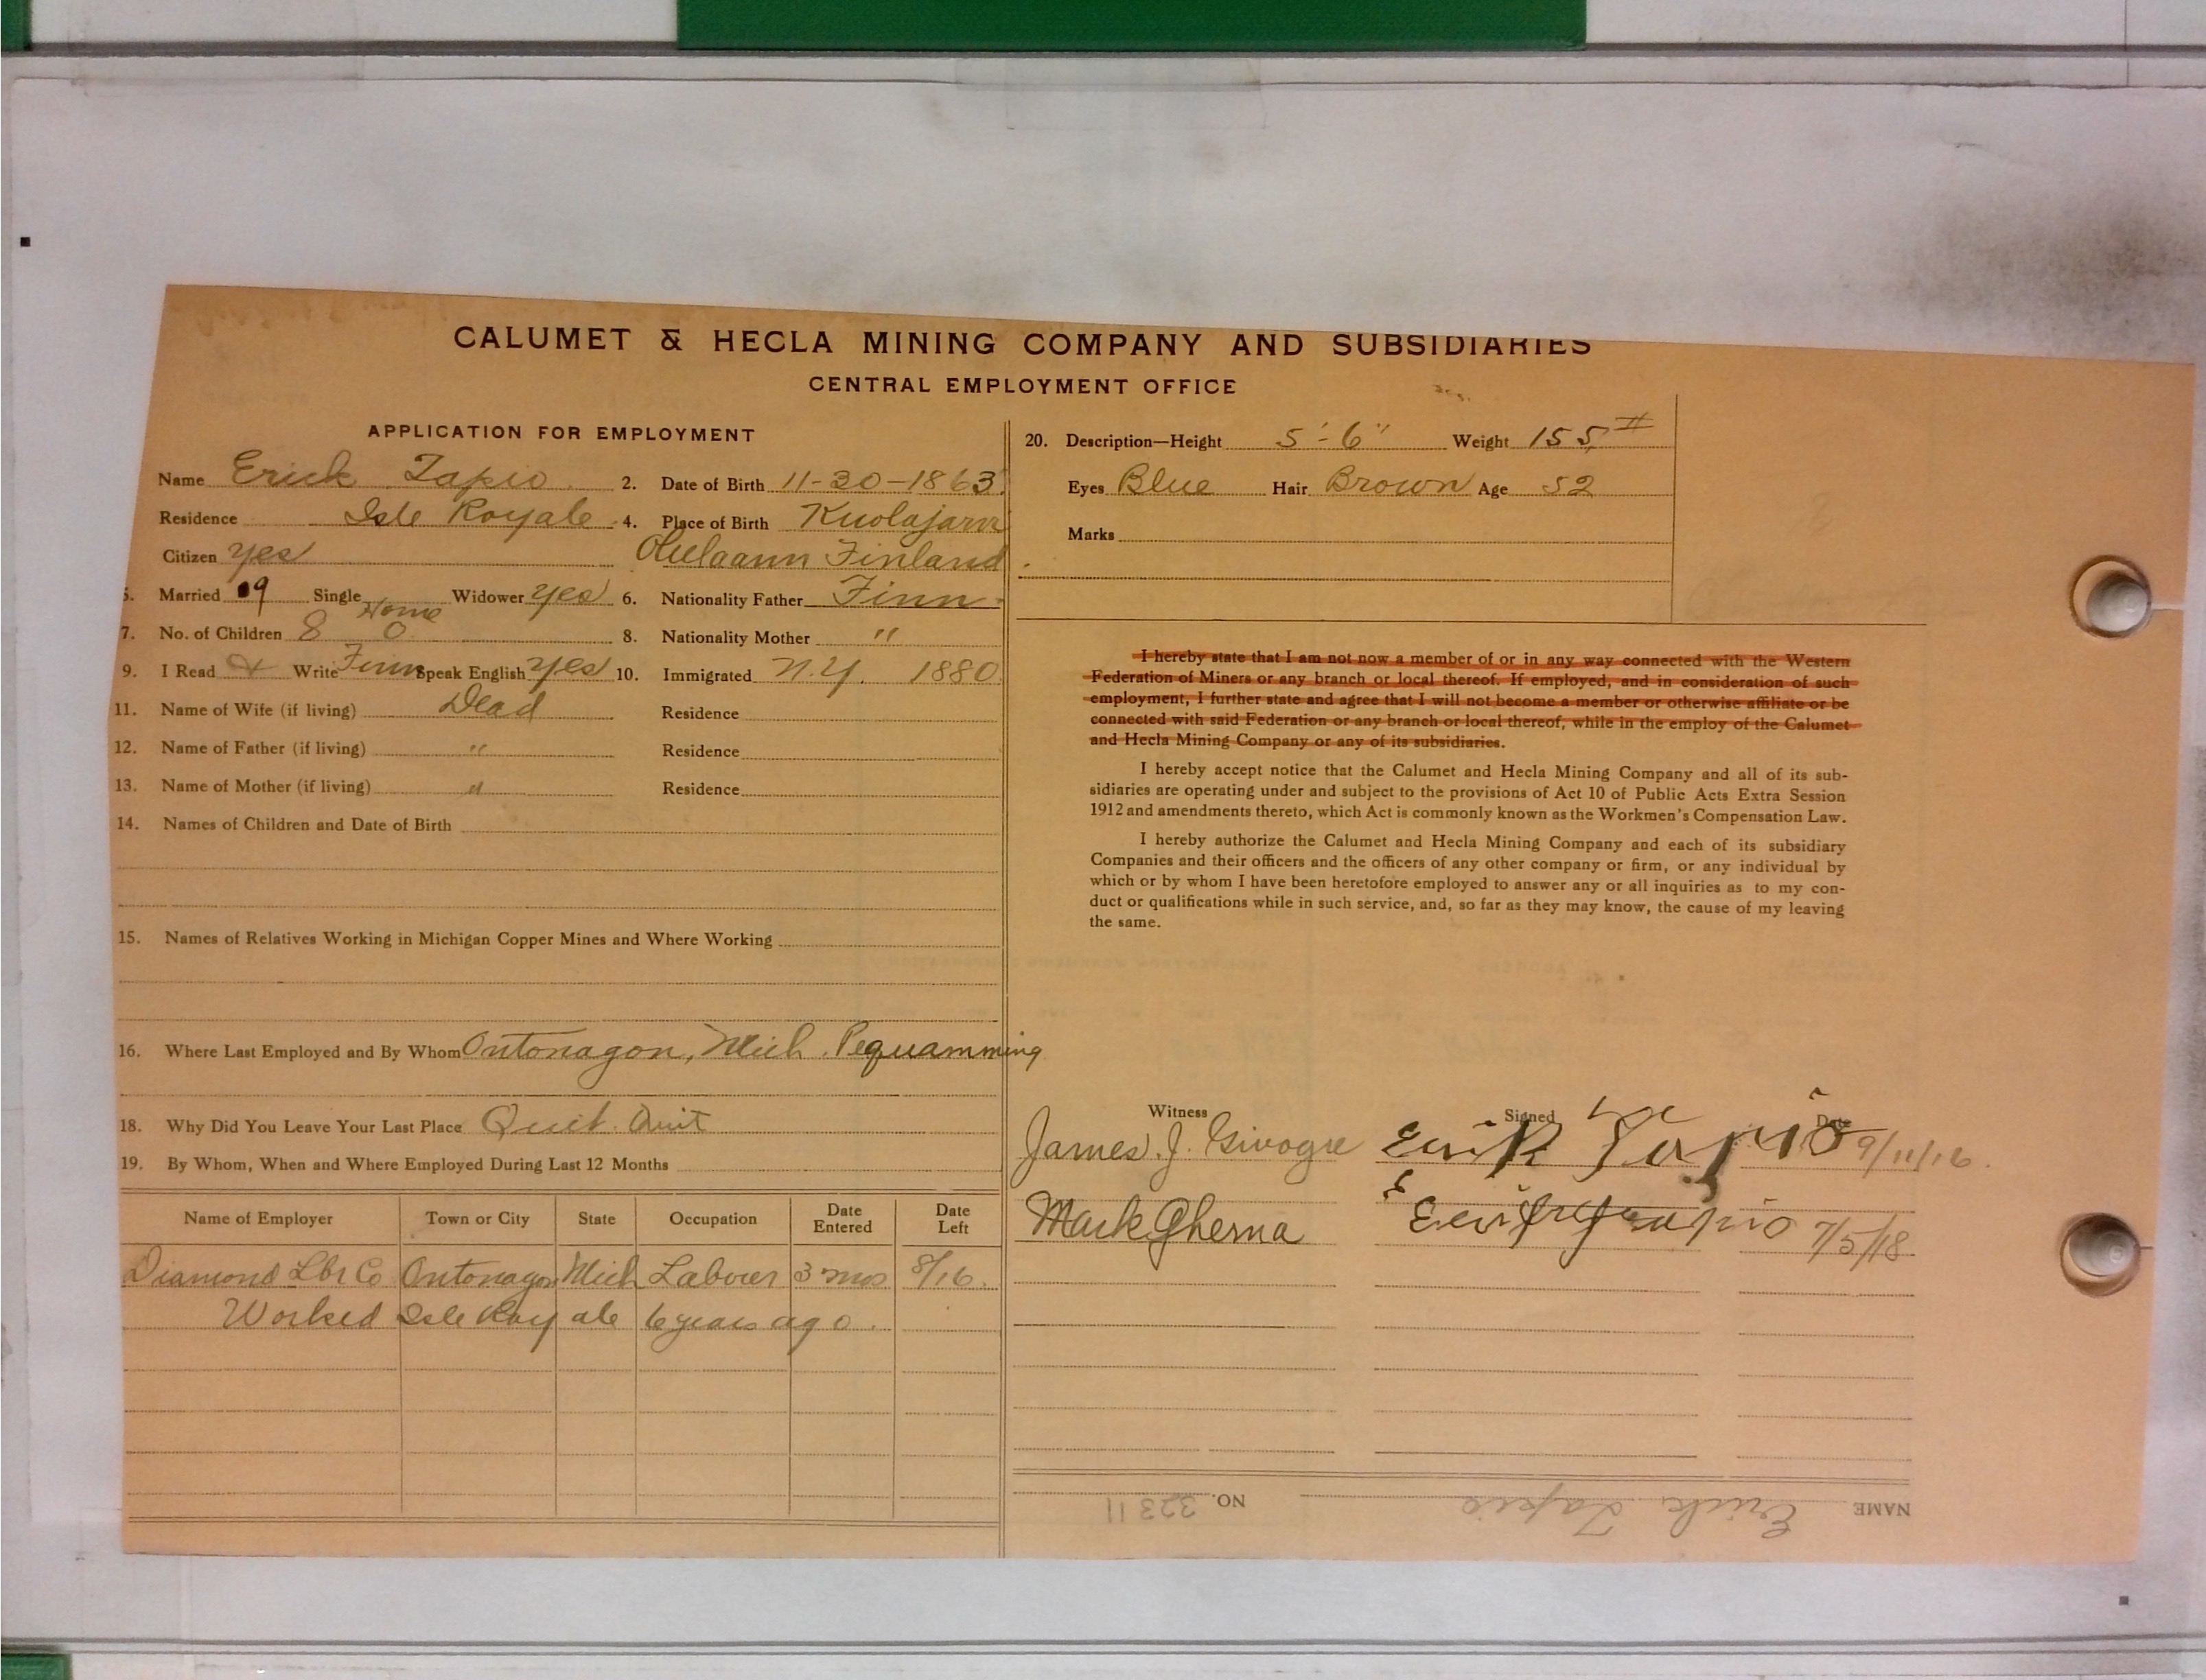 CALUMET & HECLA MINING COMPANY AND SUBSIDIARIES
CENTRAL EMPLOYMENT OFFICE
APPLICATION FOR EMPLOYMENT
Name Erick Tapio 2. Date of Birth 11-30-1863
Residence Isle Royale 4. Place of Birth Kuolajarvi
Citizen yes Finland
5. Married 9 Single Widower yes 6. Nationality Father Finn
Home
7. No. of Children 8 0 8. Nationality Mother "
9. I Read & Write Finn Speak English yes 10. Immigrated N.Y. 1880
11. Name of Wife (if living) Dead Residence
12. Name of Father (if living) " Residence
13. Name of Mother (if living) " Residence
14. Names of Children and Date of Birth
15. Names of Relatives Working in Michigan Copper Mines and Where Working
16. Where Last Employed and By Whom Ontonagon, Mich. Pequamming
18. Why Did You Leave Your Last Place Quit. Quit
19. By Whom, When and Where Employed During Last 12 Months
Name of Employer Town or City State Occupation Date Entered Date Left
Diamond Lbr Co Ontonagon Mich Laborer 3 mos 8/16.
Worked Isle Royale 6 years ago.
20. Description—Height 5'-6" Weight 155#
Eyes Blue Hair Brown Age 52
Marks
I hereby state that I am not now a member of or in any way connected with the Western
Federation of Miners or any branch or local thereof. If employed, and in consideration of such
employment, I further state and agree that I will not become a member or otherwise affiliate or be
connected with said Federation or any branch or local thereof, while in the employ of the Calumet
and Hecla Mining Company or any of its subsidiaries.
I hereby accept notice that the Calumet and Hecla Mining Company and all of its sub-
sidiaries are operating under and subject to the provisions of Act 10 of Public Acts Extra Session
1912 and amendments thereto, which Act is commonly known as the Workmen's Compensation Law.
I hereby authorize the Calumet and Hecla Mining Company and each of its subsidiary
Companies and their officers and the officers of any other company or firm, or any individual by
which or by whom I have been heretofore employed to answer any or all inquiries as to my con-
duct or qualifications while in such service, and, so far as they may know, the cause of my leaving
the same.
Witness Signed Date
James J. Erik Tapio 9/11/16.
Mark Gherna Tapio 7/5/18.
NAME Erick Tapio NO. 32311